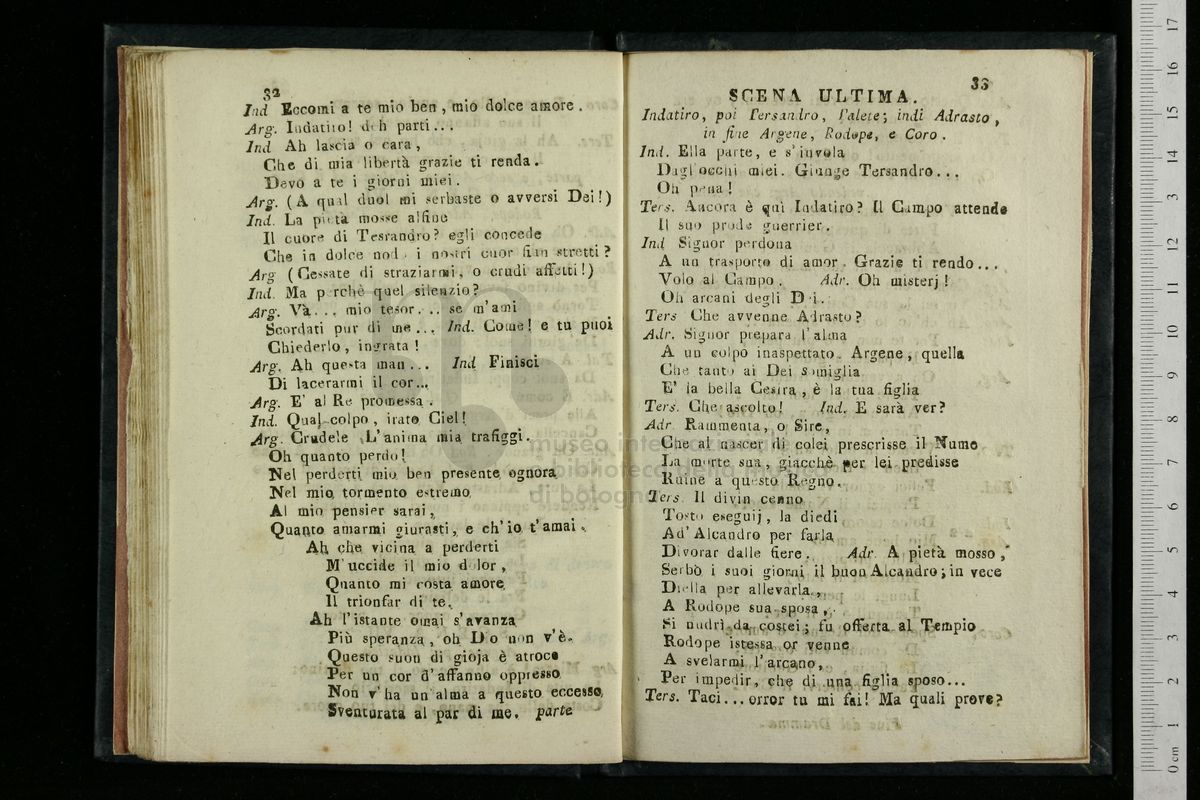 32
Ind Eccomi a te mio ben, mio dolce amore.
Arg. Indatiro! deh parti...
Ind Ah lascia o cara,
Che di mia libertà grazie ti renda.
Devo a te i giorni miei.
Arg. (A qual duol mi serbaste o avversi Dei!)
Ind. La pietà mosse alfine
Il cuore di Tesrandro? egli concede
Che in dolce nod. i nostri cuor sian stretti?
Arg (Cessate di straziarmi, o crudi affetti!)
Ind. Ma perchè quel silenzio?
Arg. Và... mio tesor... se m'ami
Scordati pur di me... Ind. Come! e tu puoi
Chiederlo, ingrata!
Arg. Ah questa man... Ind Finisci
Di lacerarmi il cor...
Arg. E' al Re promessa.
Ind. Qual colpo, irato Ciel!
Arg. Crudele L'anima mia trafiggi.
Oh quanto perdo!
Nel perderti mio ben presente ognora
Nel mio tormento estremo
Al mio pensier sarai,
Quanto amarmi giurasti, e ch'io t'amai.
Ah che vicina a perderti
M'uccide il mio dolor,
Quanto mi costa amore
Il trionfar di te.
Ah l'istante omai s'avanza
Più speranza, oh Dio non v'è.
Questo suon di gioja è atroce
Per un cor d'affanno oppresso
Non v'ha un alma a questo eccesso
Sventurata al par di me. parte
33
SCENA ULTIMA.
Indatiro, poi Tersandro, Palete; indi Adrasto,
in fine Argene, Rodope, e Coro.
Ind. Ella parte, e s'invola
Dagl'occhi miei. Giunge Tersandro...
Oh pena!
Ters. Ancora è quì Indatiro? Il Campo attende
Il suo prode guerrier.
Ind Signor perdona
A un trasporto di amor. Grazie ti rendo...
Volo al Campo. Adr. Oh misterj!
Oh arcani degli Dei.
Ters Che avvenne Adrasto?
Adr. Signor prepara l'alma
A un colpo inaspettato. Argene, quella
Che tanto ai Dei somiglia
E' la bella Cesira, è la tua figlia
Ters. Che ascolto! Ind. E sarà ver?
Adr Rammenta, o Sire,
Che al nascer di colei prescrisse il Nume
La morte sua, giacchè per lei predisse
Ruine a questo Regno.
Ters. Il divin cenno
Tosto eseguij, la diedi
Ad' Alcandro per farla
Divorar dalle fiere. Adr. A pietà mosso,
Serbò i suoi giorni il buon Alcandro; in vece
Diella per allevarla,
A Rodope sua sposa,
Si nudrì da costei; fu offerta al Tempio
Rodope istessa or venne
A svelarmi l'arcano,
Per impedir, che di una figlia sposo...
Ters. Taci... orror tu mi fai! Ma quali prove?
museo internazionale
e biblioteca della musica
di bologna